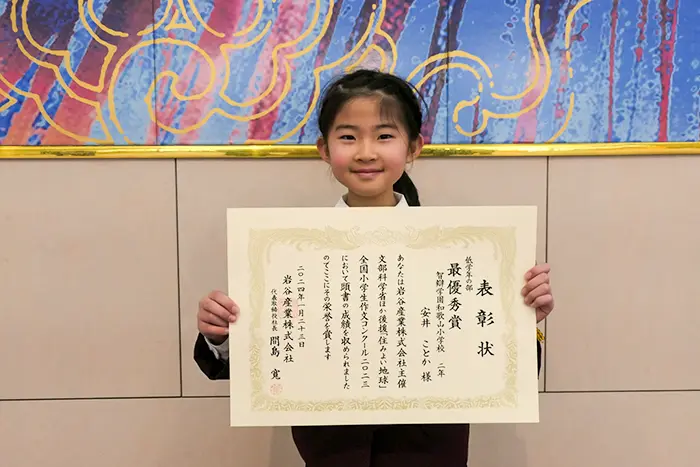 表彰状
低学年の部
最優秀賞
智辯学園和歌山小学校 二年
安井 ことか 様
あなたは岩谷産業株式会社主催
文部科学省ほか後援「住みよい地球」
全国小学生作文コンクール二〇二三
において頭書の成績を収められました
のでここにその栄誉を賞します
二〇二四年一月二十三日
岩谷産業株式会社
代表取締役社長 間島 寛